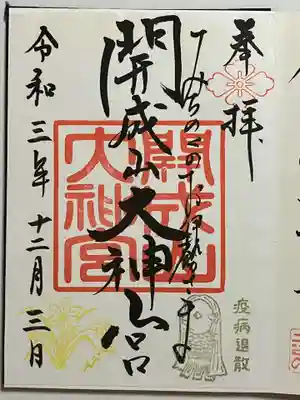 奉拝
みちのくのおいせさま
開成山大神宮
開成山大神宮
令和三年十二月三日
疫病退散